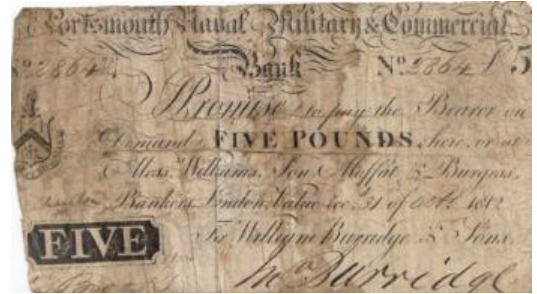 Portsmouth Naval Military & Commercial
Bank
No. 2864 No. 2864 £5
I Promise to pay the Bearer on
Demand FIVE POUNDS, here, or at
Messrs. Williams, Son, Moffat, & Burgess,
Bankers London Value rec. 31 of Octr. 1812
For William Burridge & Sons
FIVE
Wm Burridge